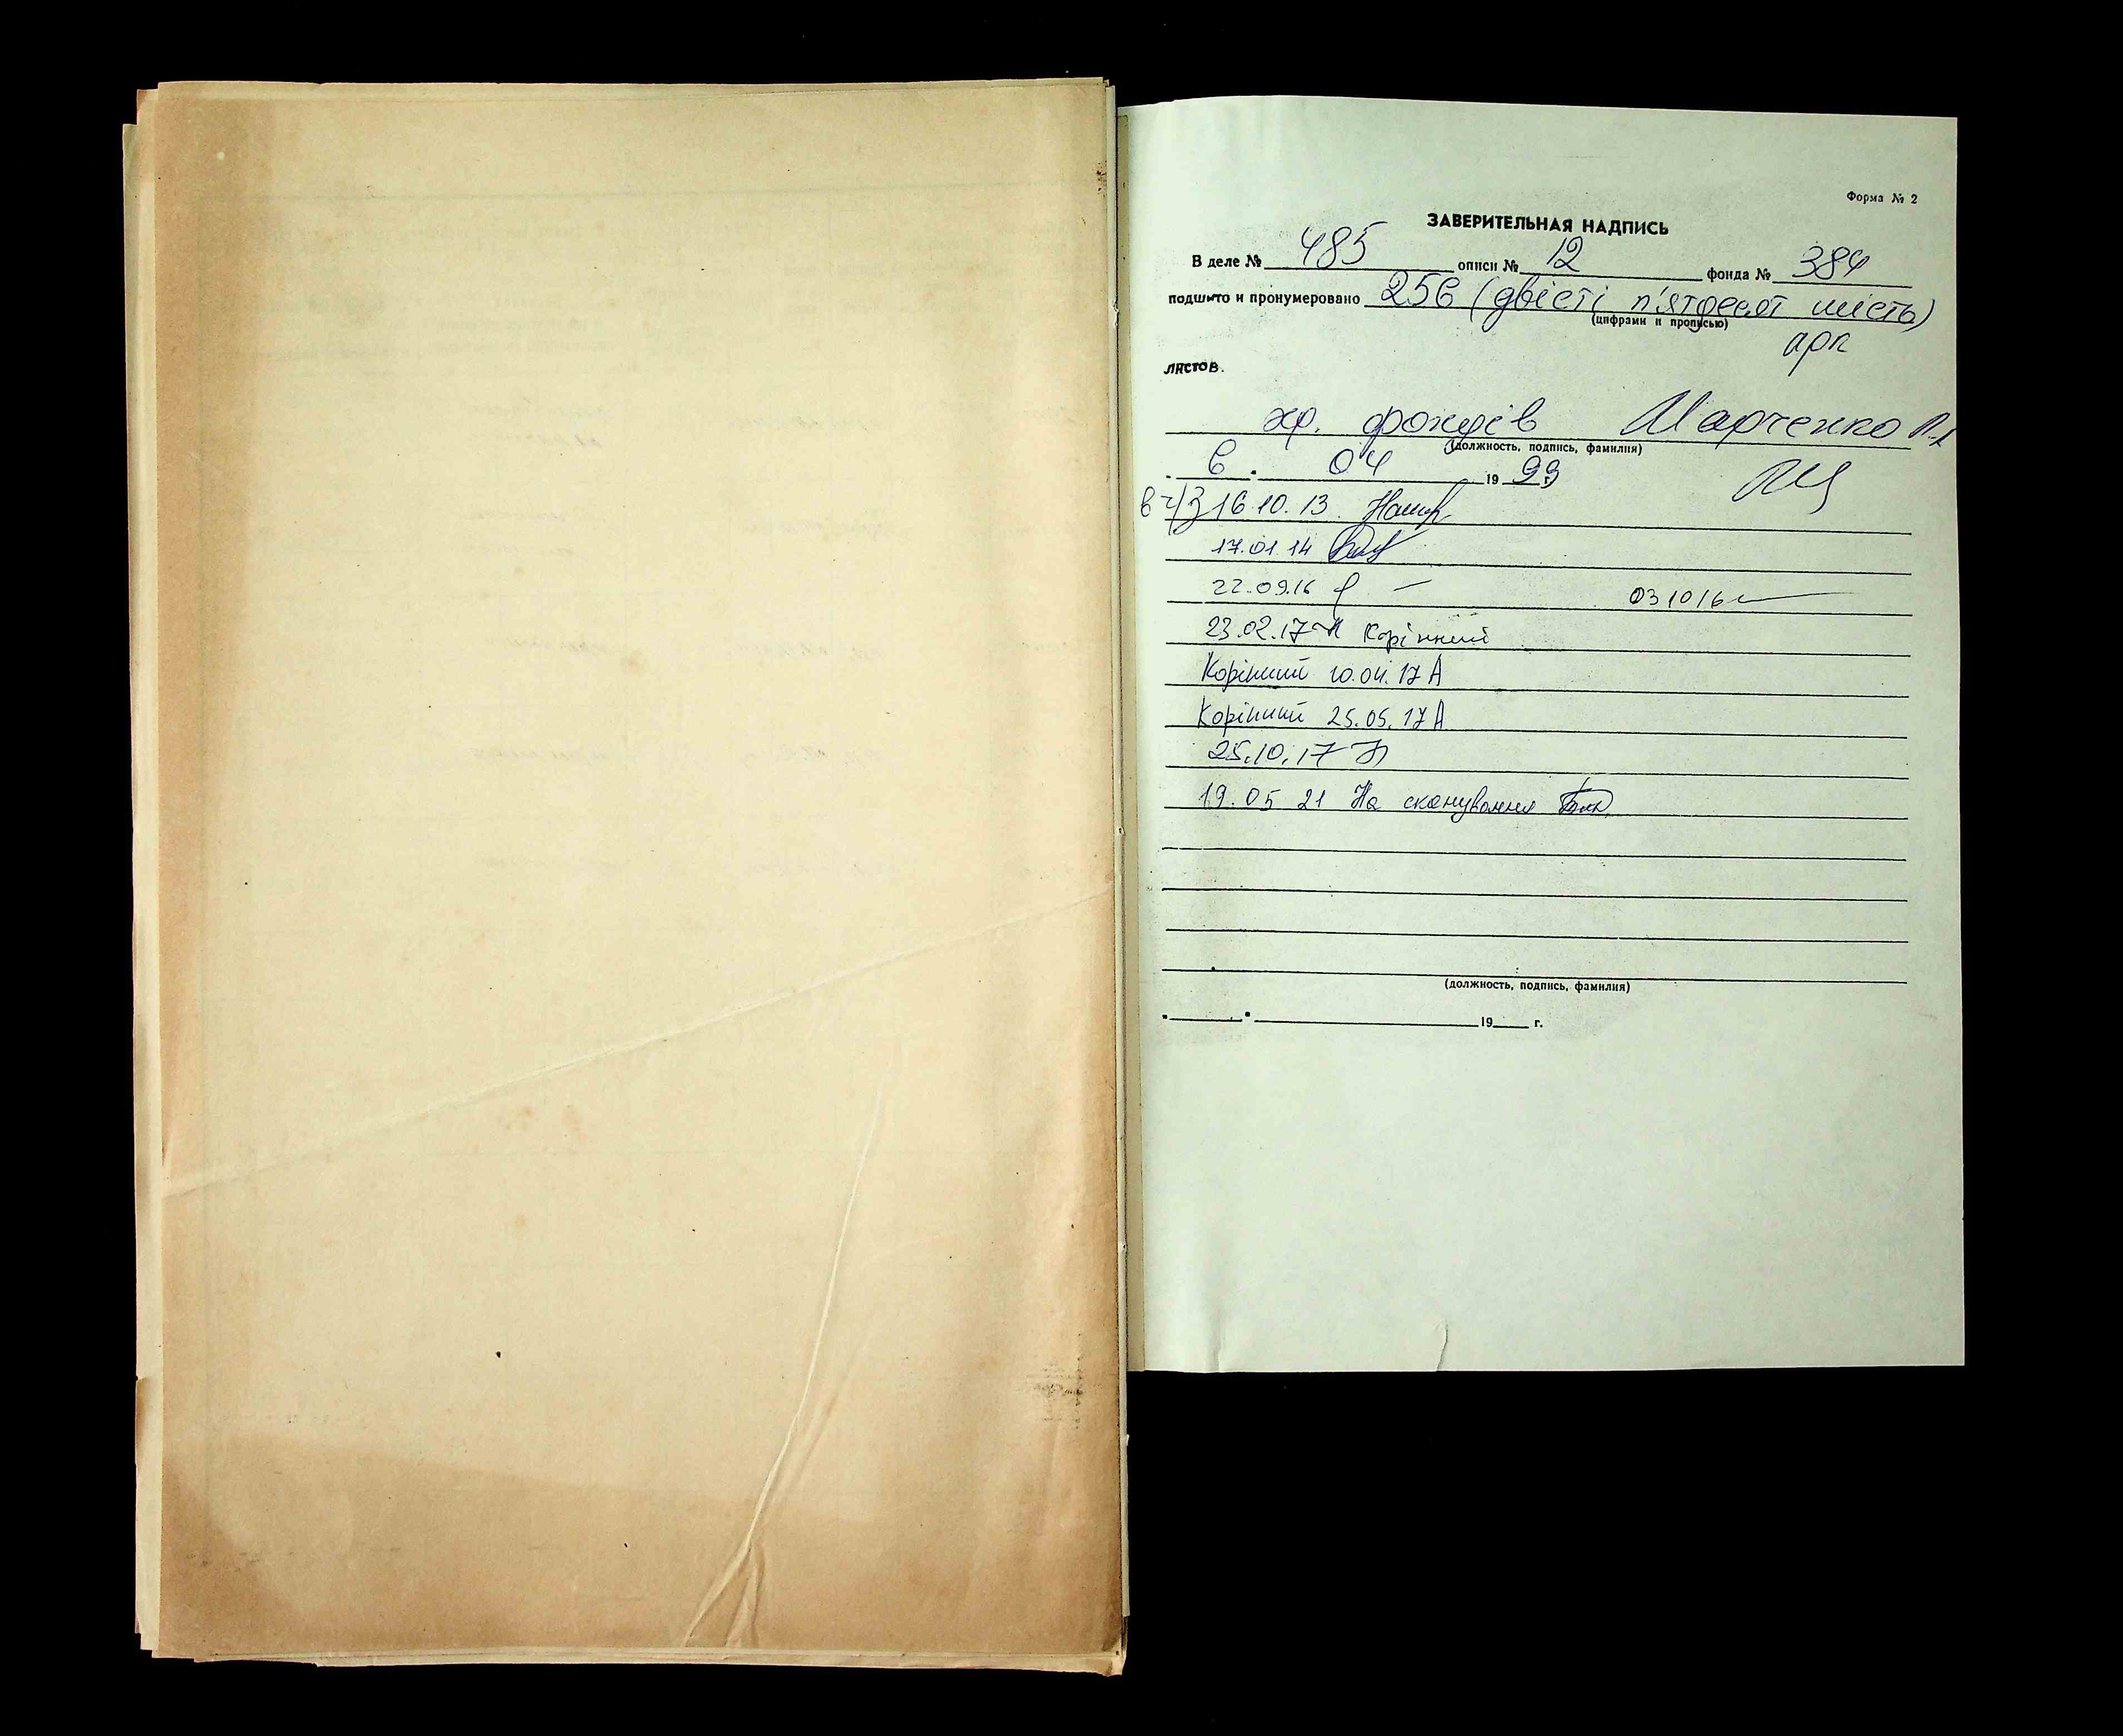 Форма № 2
ЗАВЕРИТЕЛЬНАЯ НАДПИСЬ
В деле № 485 описи № 12 фонда № 384
подшито и пронумеровано 256 (двісті п'ятдесят шість)
(цифрами и прописью)
арк
листов.
хр. фондів Марченко
(должность, подпись, фамилия)
6. 04 1999 г.
в ч/з 16.10.13
17.01.14
22.09.16 – 03 10 16
23.02.17 Корінний
Корінний 10.04.17 А
Корінний 25.05.17 А
25.10.17
19.05 21 На сканування
(должность, подпись, фамилия)
19 г.